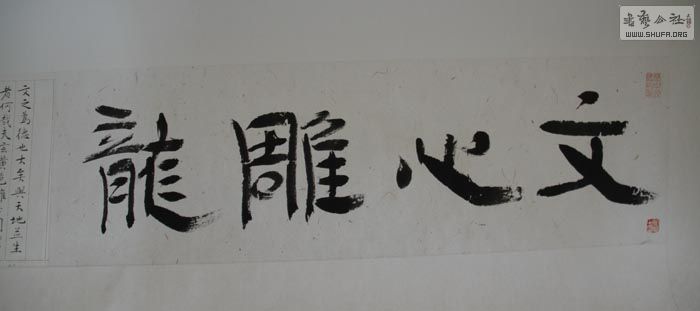 文心雕龍
文之為德也大矣與天地並生
者何哉夫玄黃色雜
書藝公社
WWW.SHUFA.ORG